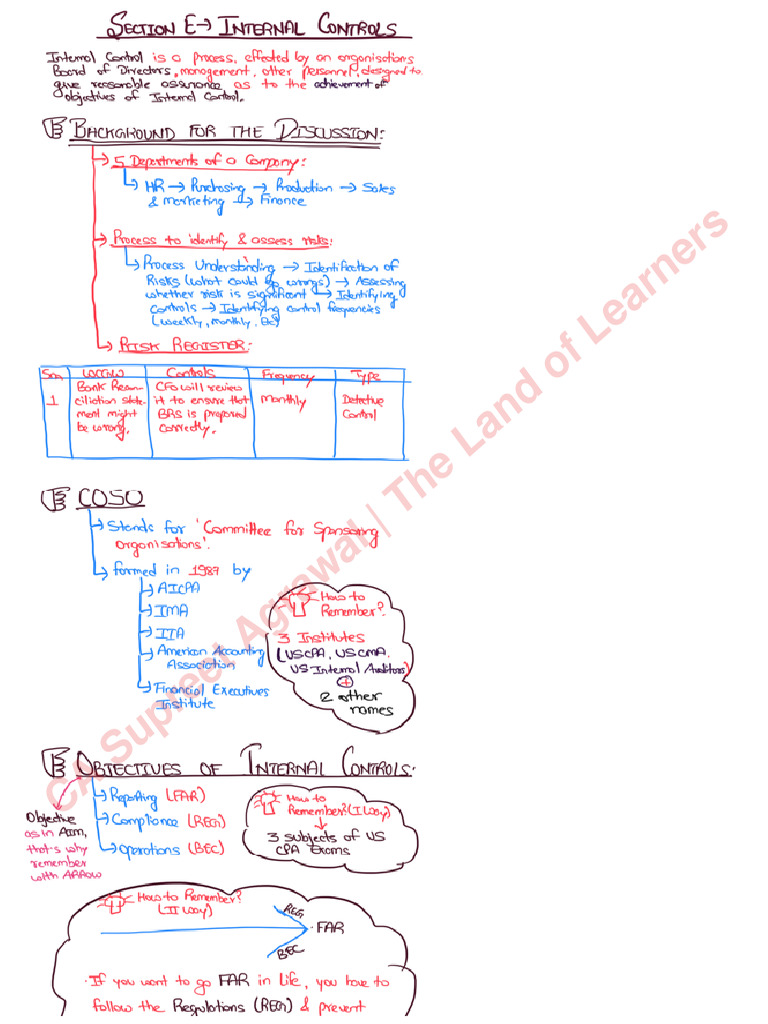 SECTION E→ INTERNAL CONTROLS
Internal Control is a process, effected by an organisations
Board of Directors, management, other personnel, designed to
give reasonable assurance as to the achievement of
objectives of Internal Control.
BACKGROUND FOR THE DISCUSSION:
5 Departments of a Company:
HR → Purchasing → Production → Sales
& marketing → Finance
Process to identify & assess risks:
Process Understanding → Identification of
Risks (what could go wrongs) → Assessing
whether risk is significant → Identifying
Controls → Identifying control frequencies
(weekly, monthly, etc)
RISK REGISTER:
Sno WCGW Controls Frequency Type
1 Bank Recon- CFO will review monthly Detective
ciliation state- it to ensure that Control
ment might BRS is prepared
be wrong. correctly.
COSO
Stands for 'Committee for Sponsoring
organisations'.
formed in 1987 by
AICPA
IMA
IIA
American Accounting
Association
Financial Executives
Institute
How to
Remember?
3 Institutes
(US CPA, US CMA,
US Internal Auditors)
+
2 other
names
OBJECTIVES OF INTERNAL CONTROLS:
Reporting (FAR)
Compliance (REG)
Operations (BEC)
Objective
as in Aim,
that's why
remember
with ARROW
How to
Remember? (I way)
3 subjects of US
CPA Exams
How to Remember?
(II way)
REG
FAR
BEC
· If you want to go FAR in life, you have to
follow the Regulations (REG) & prevent
CA Supreet Agrawal | The Land of Learners